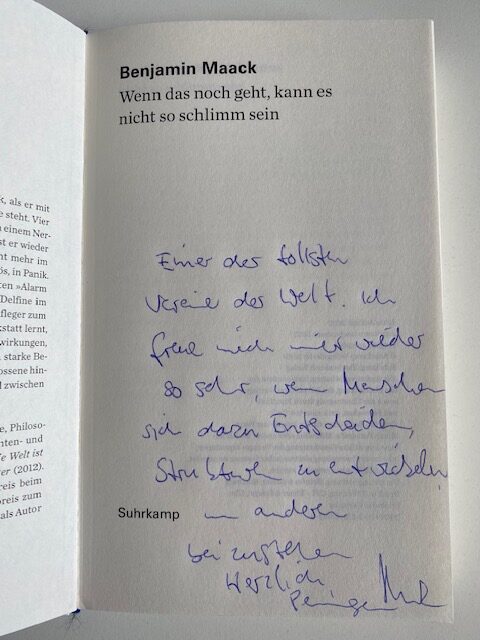 k, als er mit
e steht. Vier
einem Ner-
st er wieder
ht mehr im
ös, in Panik.
ten »Alarm
Delfine im
fleger zum
kstatt lernt,
wirkungen,
starke Be-
ossene hin-
d zwischen
e, Philoso-
nten- und
e Welt ist
er (2012).
reis beim
preis zum
als Autor
Benjamin Maack
Wenn das noch geht, kann es
nicht so schlimm sein
Einer der tollsten
Vereine der Welt. Ich
freue mich immer wieder
so sehr, wenn Menschen
sich dazu Entscheiden,
Strukturen zu entwickeln
um anderen
Suhrkamp
beizustehen
Herzlich